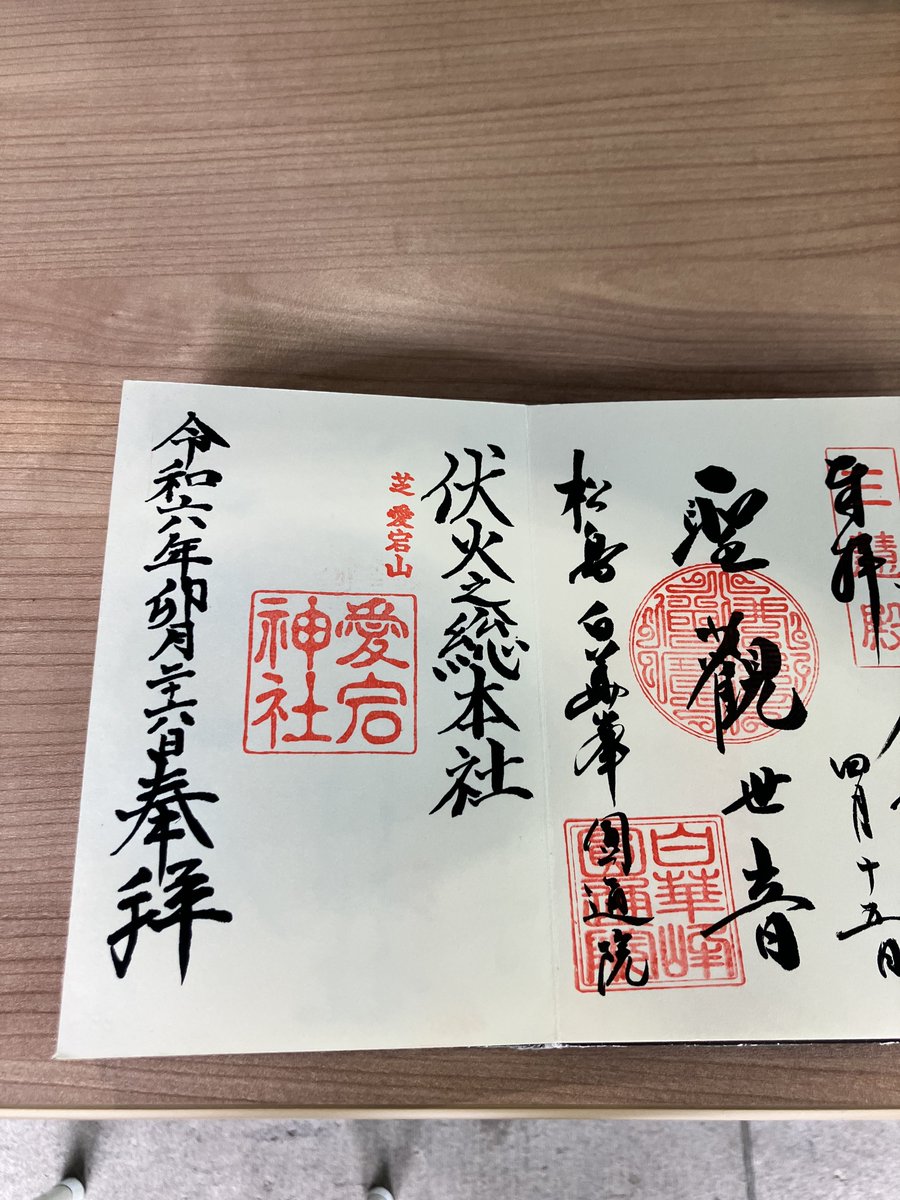 奉拝
四月十五日
聖觀世音
白華峰
圓通院
松島白華峯圓通院
伏火之総本社
芝愛宕山
愛宕
神社
令和六年卯月二十六日奉拝